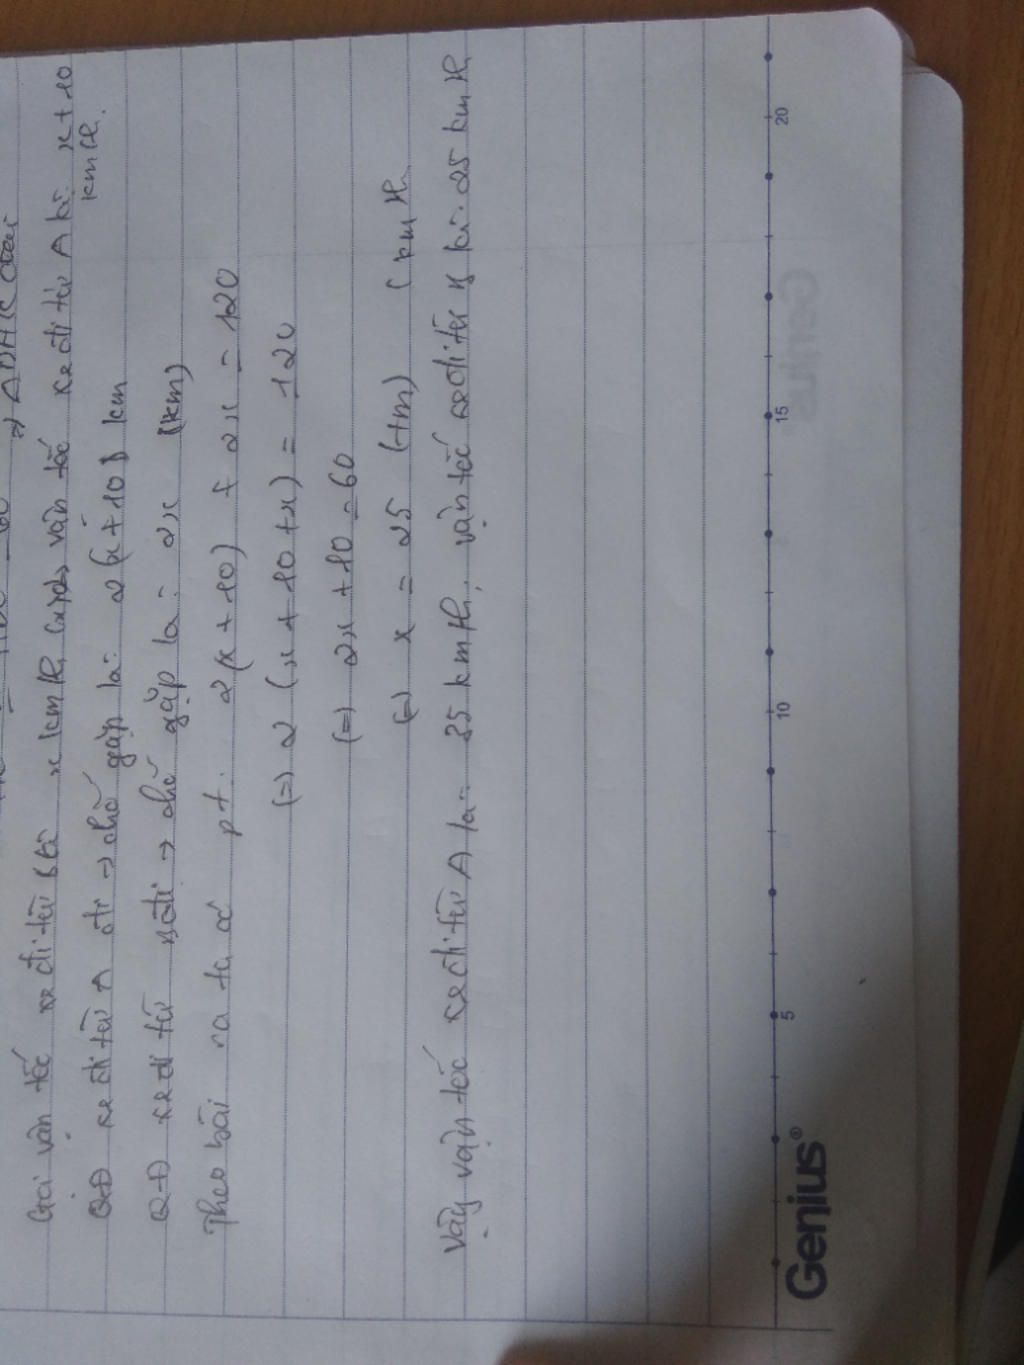 Gọi vận tốc xe đi từ B là x km/h (x>0) vận tốc xe đi từ A là x+10
km/h.
QĐ xe đi từ A đi → chỗ gặp là: 2(x+10) km
QĐ xe đi từ B đi → chỗ gặp là: 2x (km)
Theo bài ra ta có pt: 2(x+10) + 2x = 120
(=) 2(x+10+x) = 120
(=) 2x+10=60
(=) x = 25 (tm) (km/h
Vậy vận tốc xe đi từ A là: 35 km/h, vận tốc xe đi từ B là: 25 km/h
5
10
15
20
Genius®